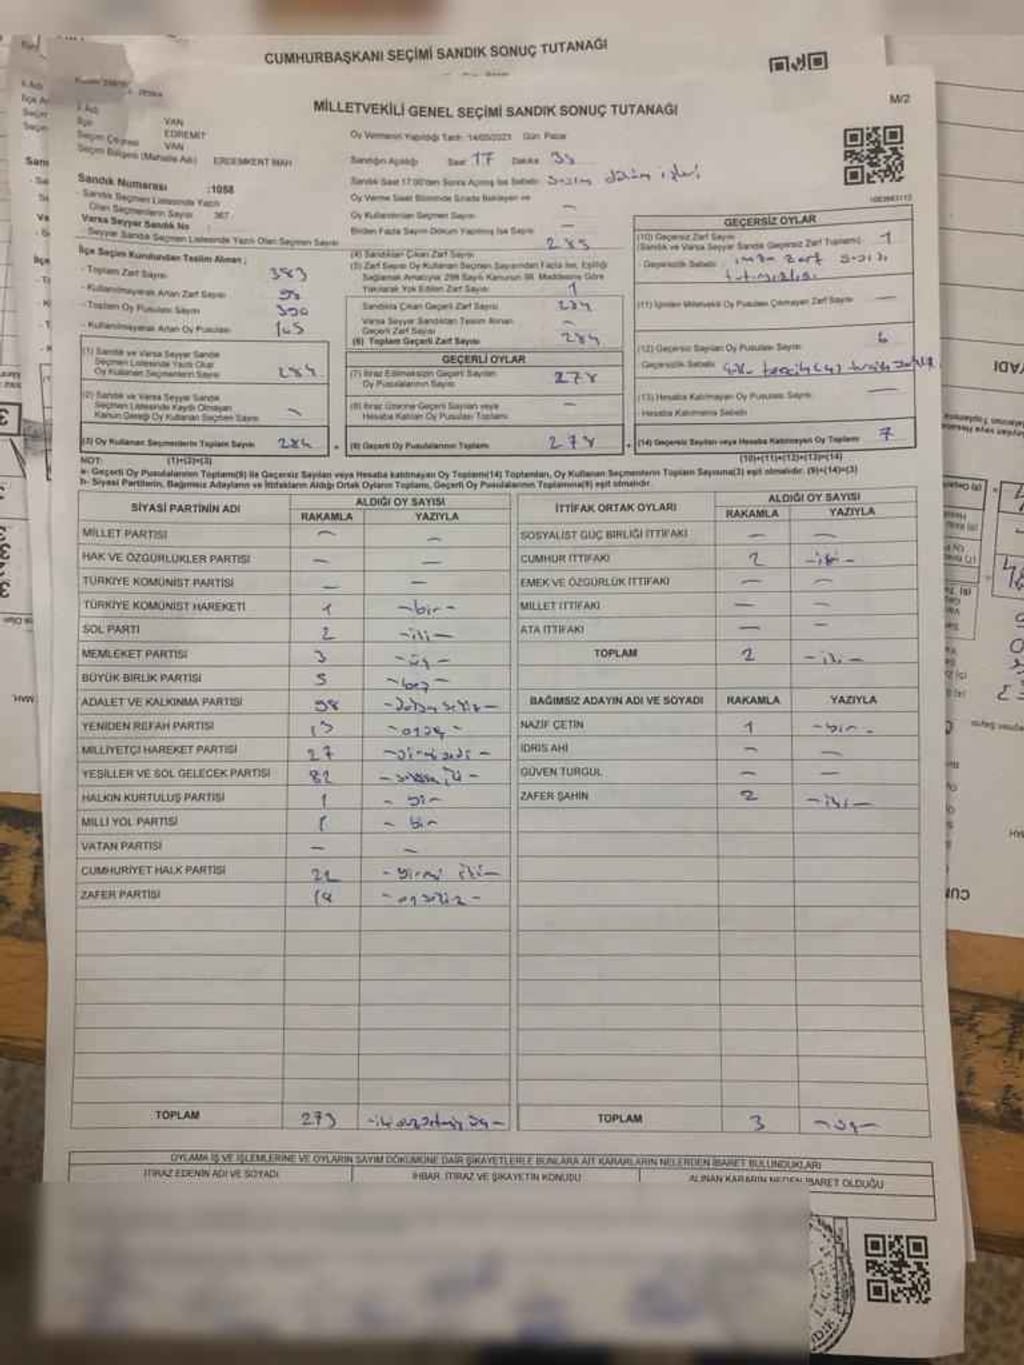 CUMHURBAŞKANI SEÇİMİ SANDIK SONUÇ TUTANAĞI
M/2
MİLLETVEKİLİ GENEL SEÇİMİ SANDIK SONUÇ TUTANAĞI
VAN
İlçe EDREMİT
Seçim Çevresi VAN
Seçim Bölgesi (Mahalle Adı) ERDEMKENT MAH
Sandık Numarası :1058
- Sandık Seçmen Listesinde Yazılı
Olan Seçmenlerin Sayısı 367
Varsa Seyyar Sandık No
Seyyar Sandık Seçmen Listesinde Yazılı Olan Seçmen Sayısı
İlçe Seçim Kurulundan Teslim Alınan ;
- Toplam Zarf Sayısı 383
- Kullanılmayarak Artan Zarf Sayısı 98
- Toplam Oy Pusulası Sayısı
- Kullanılmayarak Artan Oy Pusulası
(1) Sandık ve Varsa Seyyar Sandık
Seçmen Listesinde Yazılı Olup
Oy Kullanan Seçmenlerin Sayısı 284
(2) Sandık ve Varsa Seyyar Sandık
Seçmen Listesinde Kayıtlı Olmayan
Kanun Gereği Oy Kullanan Seçmen Sayısı –
(3) Oy Kullanan Seçmenlerin Toplam Sayısı 284
(1)+(2)=(3)
Oy Vermenin Yapıldığı Tarih 14/05/2023 Gün Pazar
Sandığın Açıldığı Saat 17 Dakika 35
Sandık Saat 17:00'den Sonra Açılmış İse Sebebi
Oy Verme Saat Bitiminde Sırada Bekleyen ve
Oy Kullandırılan Seçmen Sayısı –
Birden Fazla Sayım Döküm Yapılmış İse Sayısı –
(4) Sandıktan Çıkan Zarf Sayısı 285
(5) Zarf Sayısı Oy Kullanan Seçmen Sayısından Fazla İse, Eşitliği
Sağlamak Amacıyla 298 Sayılı Kanunun 98. Maddesine Göre
Yakılarak Yok Edilen Zarf Sayısı 1
Sandıkta Çıkan Geçerli Zarf Sayısı 284
Varsa Seyyar Sandıktan Teslim Alınan
Geçerli Zarf Sayısı –
(6) Toplam Geçerli Zarf Sayısı 284
GEÇERLİ OYLAR
(7) İtiraz Edilmeksizin Geçerli Sayılan
Oy Pusulalarının Sayısı 278
(8) İtiraz Üzerine Geçerli Sayılan veya
Hesaba Katılan Oy Pusulası Toplamı –
(9) Geçerli Oy Pusulalarının Toplamı 278
GEÇERSİZ OYLAR
(10) Geçersiz Zarf Sayısı
(Sandık ve Varsa Seyyar Sandık Geçersiz Zarf Toplamı) 1
- Geçersizlik Sebebi: imza zarf sayısı
tutmazlığı
(11) İçinden Milletvekili Oy Pusulası Çıkmayan Zarf Sayısı —
(12) Geçersiz Sayılan Oy Pusulası Sayısı 6
(13) Hesaba Katılmayan Oy Pusulası Sayısı —
- Hesaba Katılmama Sebebi
(14) Geçersiz Sayılan veya Hesaba Katılmayan Oy Toplamı 7
(10)+(11)+(12)+(13)=(14)
NOT:
a- Geçerli Oy Pusulalarının Toplamı(9) ile Geçersiz Sayılan veya Hesaba katılmayan Oy Toplamı(14) Toplamları, Oy Kullanan Seçmenlerin Toplam Sayısına(3) eşit olmalıdır. (9)+(14)=(3)
b- Siyasi Partilerin, Bağımsız Adayların ve İttifakların Aldığı Ortak Oyların Toplamı, Geçerli Oy Pusulalarının Toplamına(9) eşit olmalıdır.
SİYASİ PARTİNİN ADI ALDIĞI OY SAYISI
RAKAMLA YAZIYLA
MİLLET PARTİSİ – –
HAK VE ÖZGÜRLÜKLER PARTİSİ – –
TÜRKİYE KOMÜNİST PARTİSİ – –
TÜRKİYE KOMÜNİST HAREKETİ 1 -bir-
SOL PARTİ 2 -iki-
MEMLEKET PARTİSİ 3 -üç-
BÜYÜK BİRLİK PARTİSİ 5 -beş-
ADALET VE KALKINMA PARTİSİ 98 -doksan sekiz-
YENİDEN REFAH PARTİSİ 13 -onüç-
MİLLİYETÇİ HAREKET PARTİSİ 27 -yirmi yedi-
YEŞİLLER VE SOL GELECEK PARTİSİ 82 -seksen iki-
HALKIN KURTULUŞ PARTİSİ 1 -bir-
MİLLİ YOL PARTİSİ 1 -bir-
VATAN PARTİSİ – –
CUMHURİYET HALK PARTİSİ 22 -yirmi iki-
ZAFER PARTİSİ 18 -onsekiz-
TOPLAM 273 -iki yüz yetmiş üç-
İTTİFAK ORTAK OYLARI ALDIĞI OY SAYISI
RAKAMLA YAZIYLA
SOSYALİST GÜÇ BİRLİĞİ İTTİFAKI – –
CUMHUR İTTİFAKI 2 -iki-
EMEK VE ÖZGÜRLÜK İTTİFAKI – –
MİLLET İTTİFAKI – –
ATA İTTİFAKI – –
TOPLAM 2 -iki-
BAĞIMSIZ ADAYIN ADI VE SOYADI RAKAMLA YAZIYLA
NAZİF ÇETİN 1 -bir-
İDRİS AHİ – –
GÜVEN TURGUL – –
ZAFER ŞAHİN 2 -iki-
TOPLAM 3 -üç-
OYLAMA İŞ VE İŞLEMLERİNE VE OYLARIN SAYIM DÖKÜMÜNE DAİR ŞİKAYETLERLE BUNLARA AİT KARARLARIN NELERDEN İBARET BULUNDUKLARI
İTİRAZ EDENİN ADI VE SOYADI İHBAR, İTİRAZ VE ŞİKAYETİN KONUDU ALINAN KARARIN NEDEN İBARET OLDUĞU